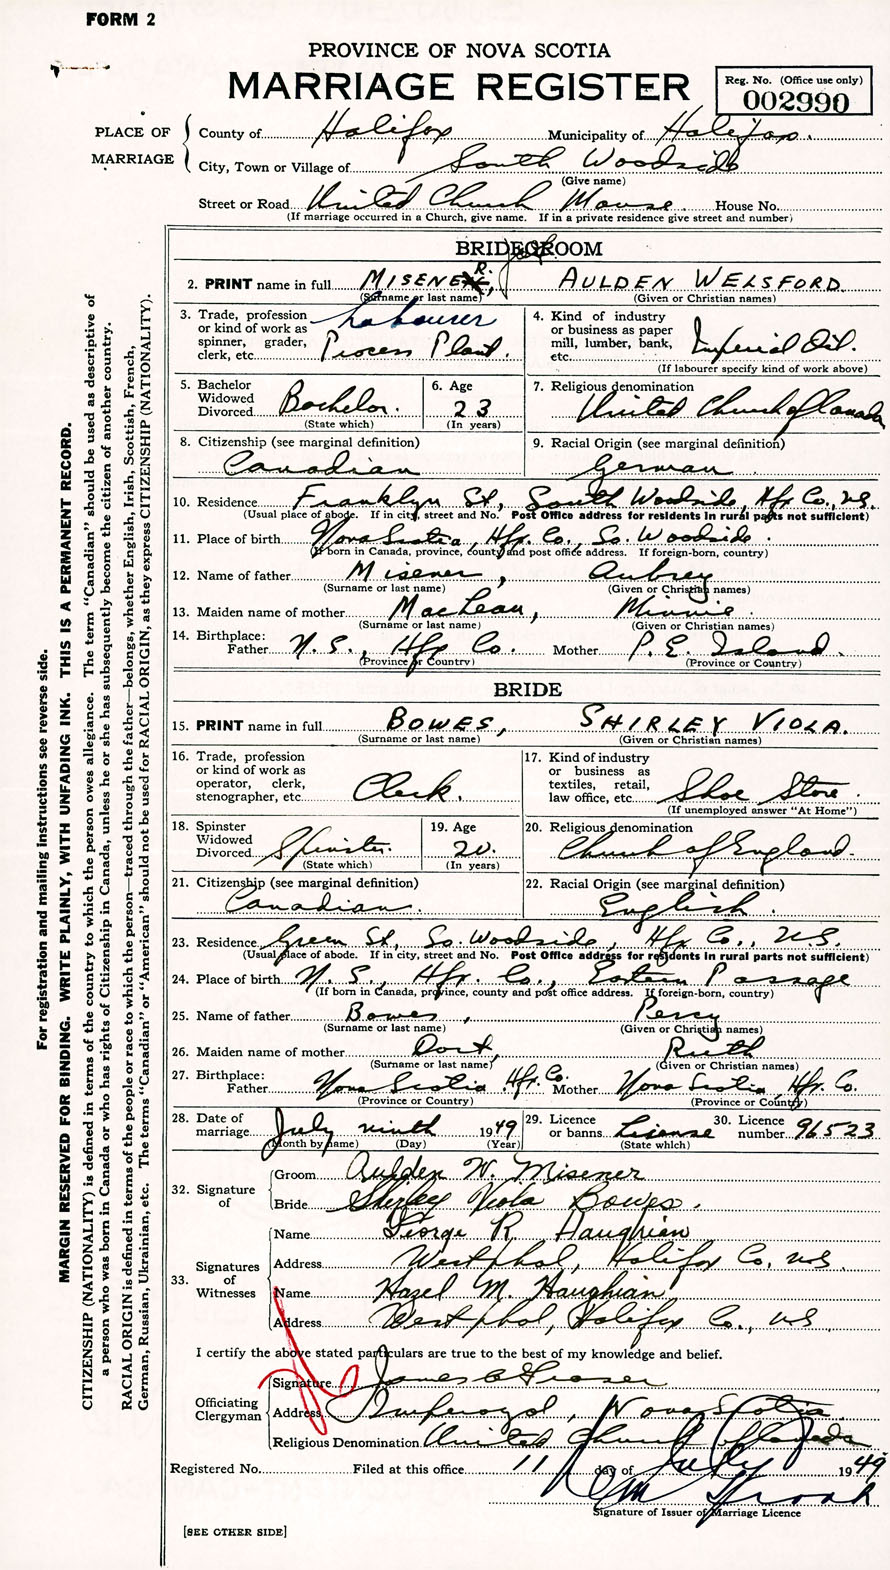 FORM 2
PROVINCE OF NOVA SCOTIA
MARRIAGE REGISTER
Reg. No. (Office use only)
002990
PLACE OF MARRIAGE
County of Halifax Municipality of Halifax.
City, Town or Village of South Woodside
(Give name)
Street or Road United Church Manse. House No.
(If marriage occurred in a Church, give name. If in a private residence give street and number)
BRIDEGROOM
2. PRINT name in full MISENER, AULDEN WELSFORD.
(Surname or last name) (Given or Christian names)
3. Trade, profession or kind of work as spinner, grader, clerk, etc. Labourer Process Plant.
4. Kind of industry or business as paper mill, lumber, bank, etc. Imperial Oil.
(If labourer specify kind of work above)
5. Bachelor Widowed Divorced Bachelor.
(State which)
6. Age 23
(In years)
7. Religious denomination United Church of Canada
8. Citizenship (see marginal definition) Canadian
9. Racial Origin (see marginal definition) German
10. Residence Franklyn St, South Woodside, Hfx Co., N.S.
(Usual place of abode. If in city, street and No. Post Office address for residents in rural parts not sufficient)
11. Place of birth Nova Scotia, Hfx. Co., So. Woodside.
(If born in Canada, province, county and post office address. If foreign-born, country)
12. Name of father Misener, Aubrey
(Surname or last name) (Given or Christian names)
13. Maiden name of mother MacLean, Minnie.
(Surname or last name) (Given or Christian names)
14. Birthplace: Father N.S., Hfx Co. Mother P.E. Island.
(Province or Country) (Province or Country)
BRIDE
15. PRINT name in full BOWES, SHIRLEY VIOLA.
(Surname or last name) (Given or Christian names)
16. Trade, profession or kind of work as operator, clerk, stenographer, etc. Clerk.
17. Kind of industry or business as textiles, retail, law office, etc. Shoe Store.
(If unemployed answer "At Home")
18. Spinster Widowed Divorced Spinster.
(State which)
19. Age 20.
(In years)
20. Religious denomination Church of England.
21. Citizenship (see marginal definition) Canadian.
22. Racial Origin (see marginal definition) English.
23. Residence Green St, So. Woodside, Hfx Co., N.S.
(Usual place of abode. If in city, street and No. Post Office address for residents in rural parts not sufficient)
24. Place of birth N.S., Hfx. Co., Eastern Passage
(If born in Canada, province, county and post office address. If foreign-born, country)
25. Name of father Bowes, Percy
(Surname or last name) (Given or Christian names)
26. Maiden name of mother Dort, Ruth
(Surname or last name) (Given or Christian names)
27. Birthplace: Father Nova Scotia Hfx. Co. Mother Nova Scotia, Hfx. Co.
(Province or Country) (Province or Country)
28. Date of marriage July ninth 1949
(Month by name) (Day) (Year)
29. Licence or banns License
(State which)
30. Licence number 96523
32. Signature of
Groom Aulden W. Misener
Bride Shirley Viola Bowes.
33. Signatures of Witnesses
Name George R Haughian
Address Westphal, Halifax Co, N.S
Name Hazel M. Haughian
Address Westphal, Halifax Co., NS
I certify the above stated particulars are true to the best of my knowledge and belief.
Officiating Clergyman
Signature James A Fraser
Address Imperoyal, Nova Scotia
Religious Denomination United Church of Canada
Registered No. Filed at this office 11 day of July 1949
Signature of Issuer of Marriage Licence
[SEE OTHER SIDE]
For registration and mailing instructions see reverse side.
MARGIN RESERVED FOR BINDING. WRITE PLAINLY, WITH UNFADING INK. THIS IS A PERMANENT RECORD.
CITIZENSHIP (NATIONALITY) is defined in terms of the country to which the person owes allegiance. The term "Canadian" should be used as descriptive of
a person who was born in Canada or who has rights of Citizenship in Canada, unless he or she has subsequently become the citizen of another country.
RACIAL ORIGIN is defined in terms of the people or race to which the person—traced through the father—belongs, whether English, Irish, Scottish, French,
German, Russian, Ukrainian, etc. The terms "Canadian" or "American" should not be used for RACIAL ORIGIN, as they express CITIZENSHIP (NATIONALITY).